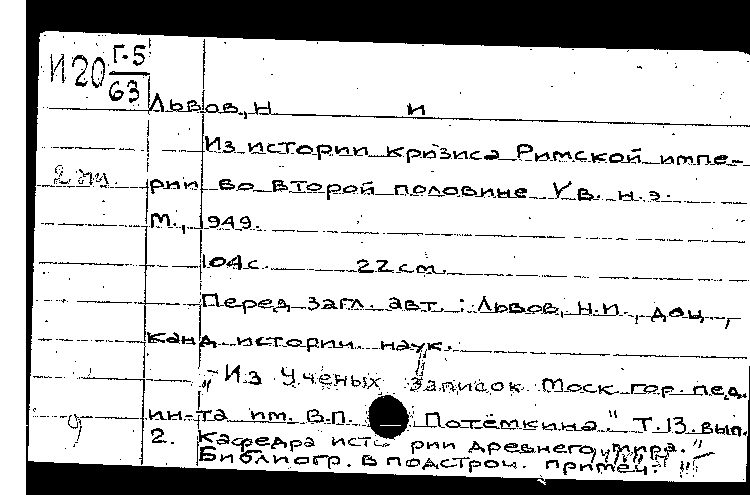 И20 Г-5
63
Львов, Н И
Из истории кризиса Римской импе-
2 экз.
рии во второй половине V в. н.э.
М., 1949.
104 с. 22 см.
Перед загл. авт.: Львов, Н.И., доц.,
канд. историч. наук.
"Из Ученых записок Моск. гор. пед.
ин-та им. В.П. Потёмкина." Т.13. вып.
2. Кафедра истории древнего мира."
Библиогр. в подстроч. примеч.